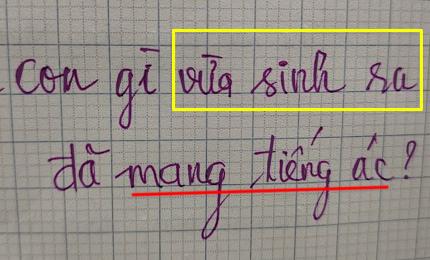 Con gì vừa sinh ra
đã mang tiếng ác?